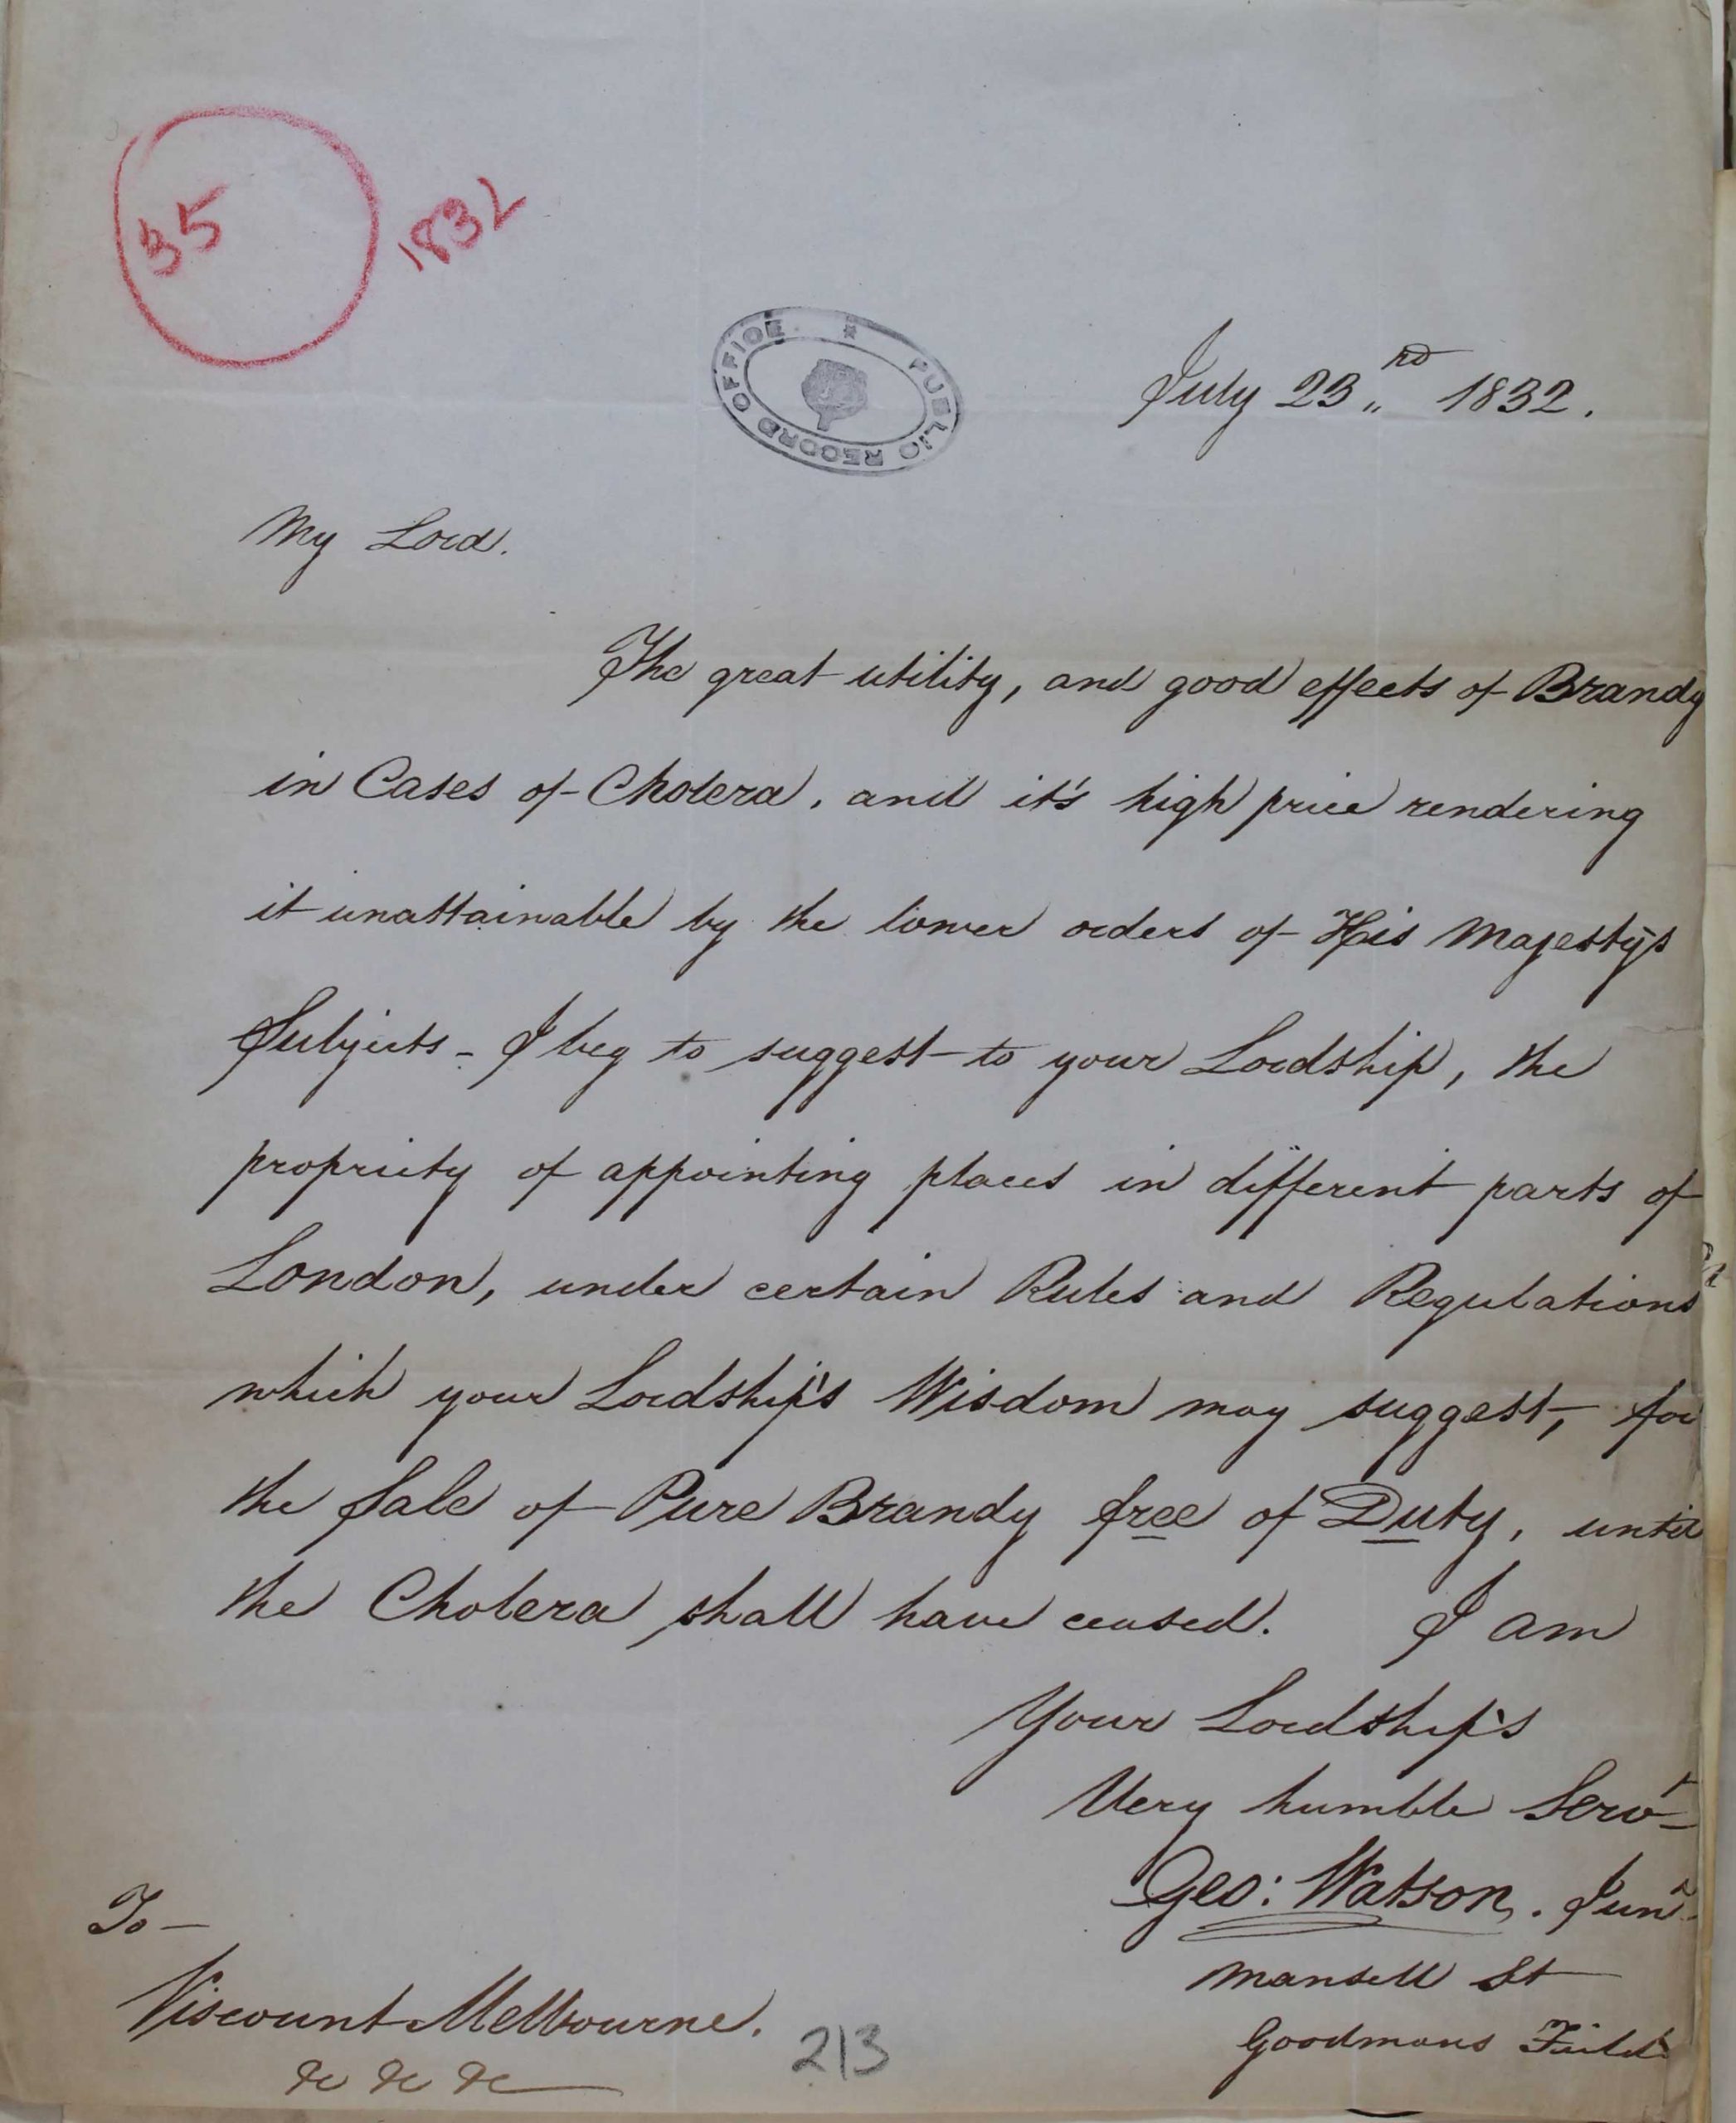 35
1832
PUBLIC RECORD OFFICE
July 23rd 1832.
My Lord.
The great utility, and good effects of Brandy
in Cases of Cholera, and it's high price rendering
it unattainable by the lower orders of His Majesty's
Subjects - I beg to suggest to your Lordship, the
propriety of appointing places in different parts of
London, under certain Rules and Regulations
which your Lordship's Wisdom may suggest, for
the Sale of Pure Brandy free of Duty, until
the Cholera shall have ceased. I am
Your Lordship's
Very humble Servt
Geo: Watson. Junr
Mansell St
Goodmans Fields
To -
Viscount Melbourne.
&c &c &c
213